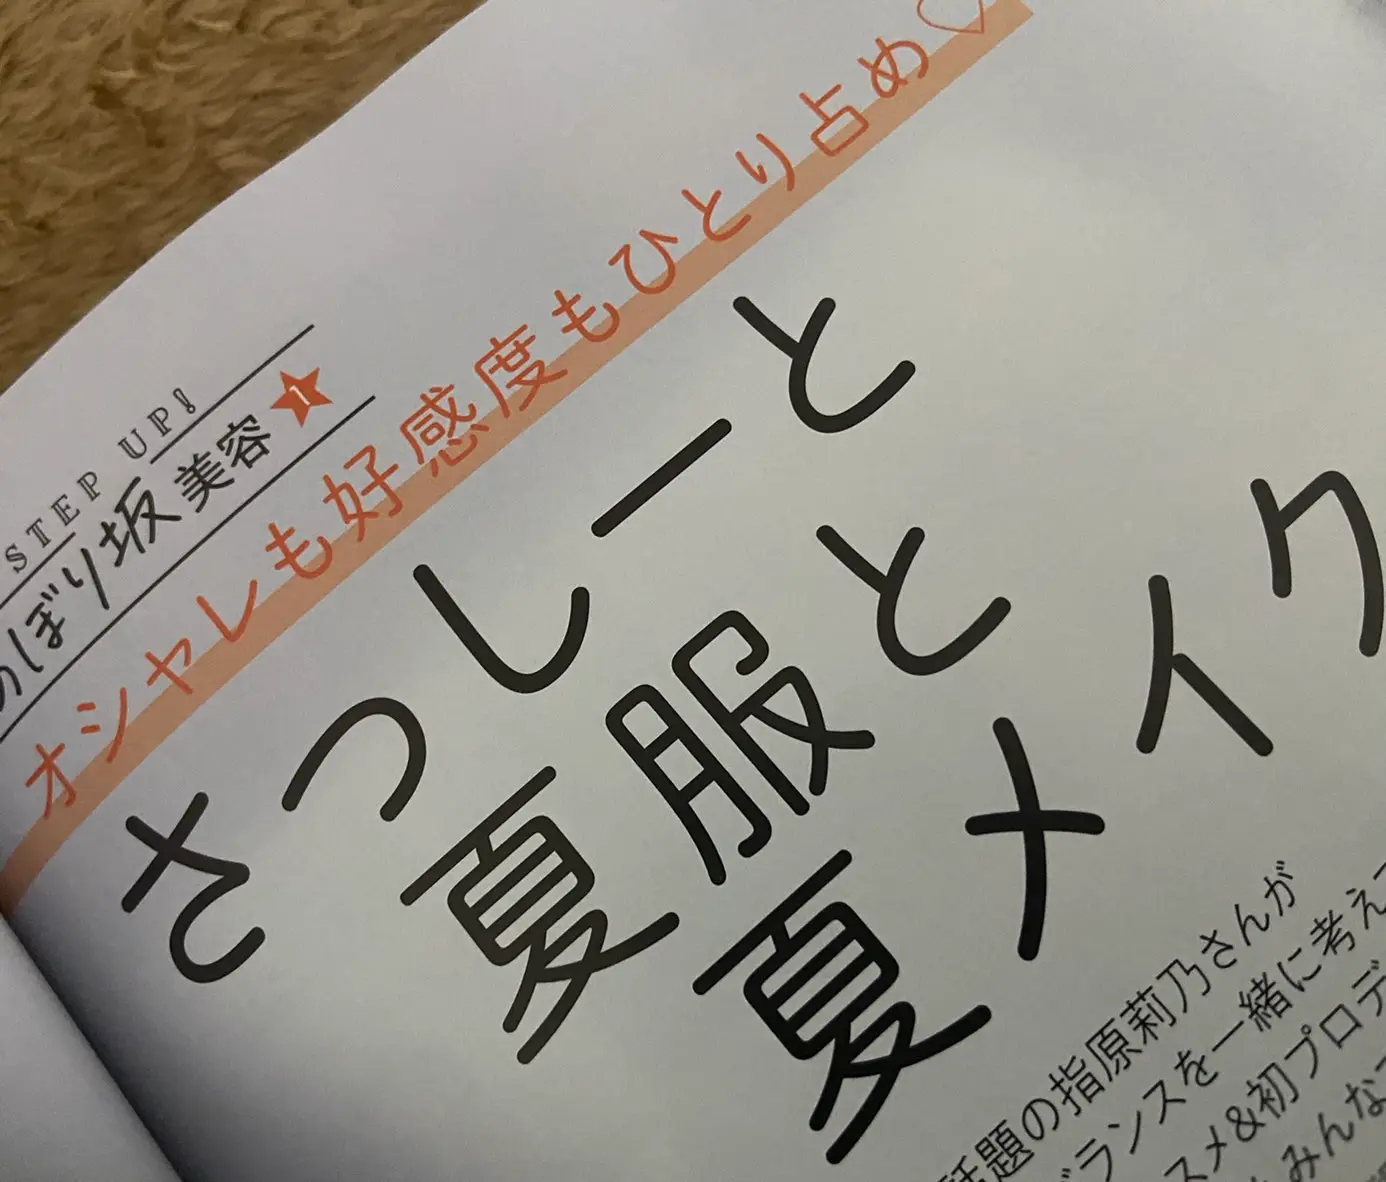 STEP UP!
のぼり坂 美容 1
オシャレも好感度もひとり占め♡
さっしーと
夏服と
夏メイク
話題の指原莉乃さんが
バランスを一緒に考え
スメ&初プロデ
みんな